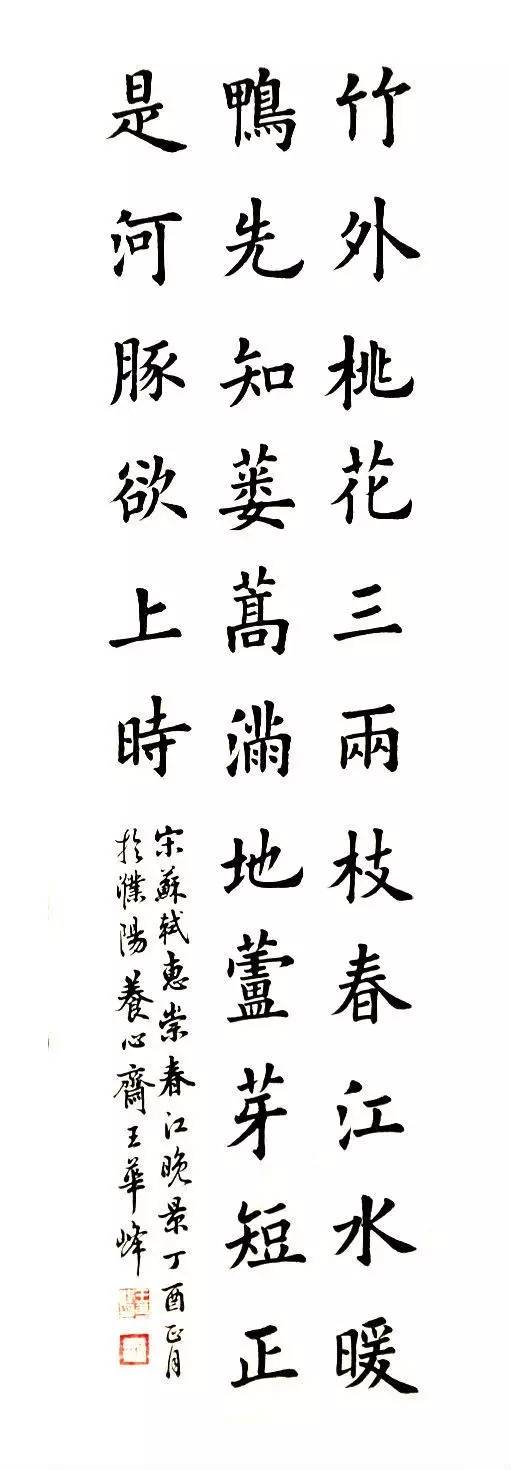 竹外桃花三兩枝春江水暖
鴨先知蔞蒿滿地蘆芽短正
是河豚欲上時
宋蘇軾惠崇春江晚景丁酉正月
於濮陽養心齋王華峰